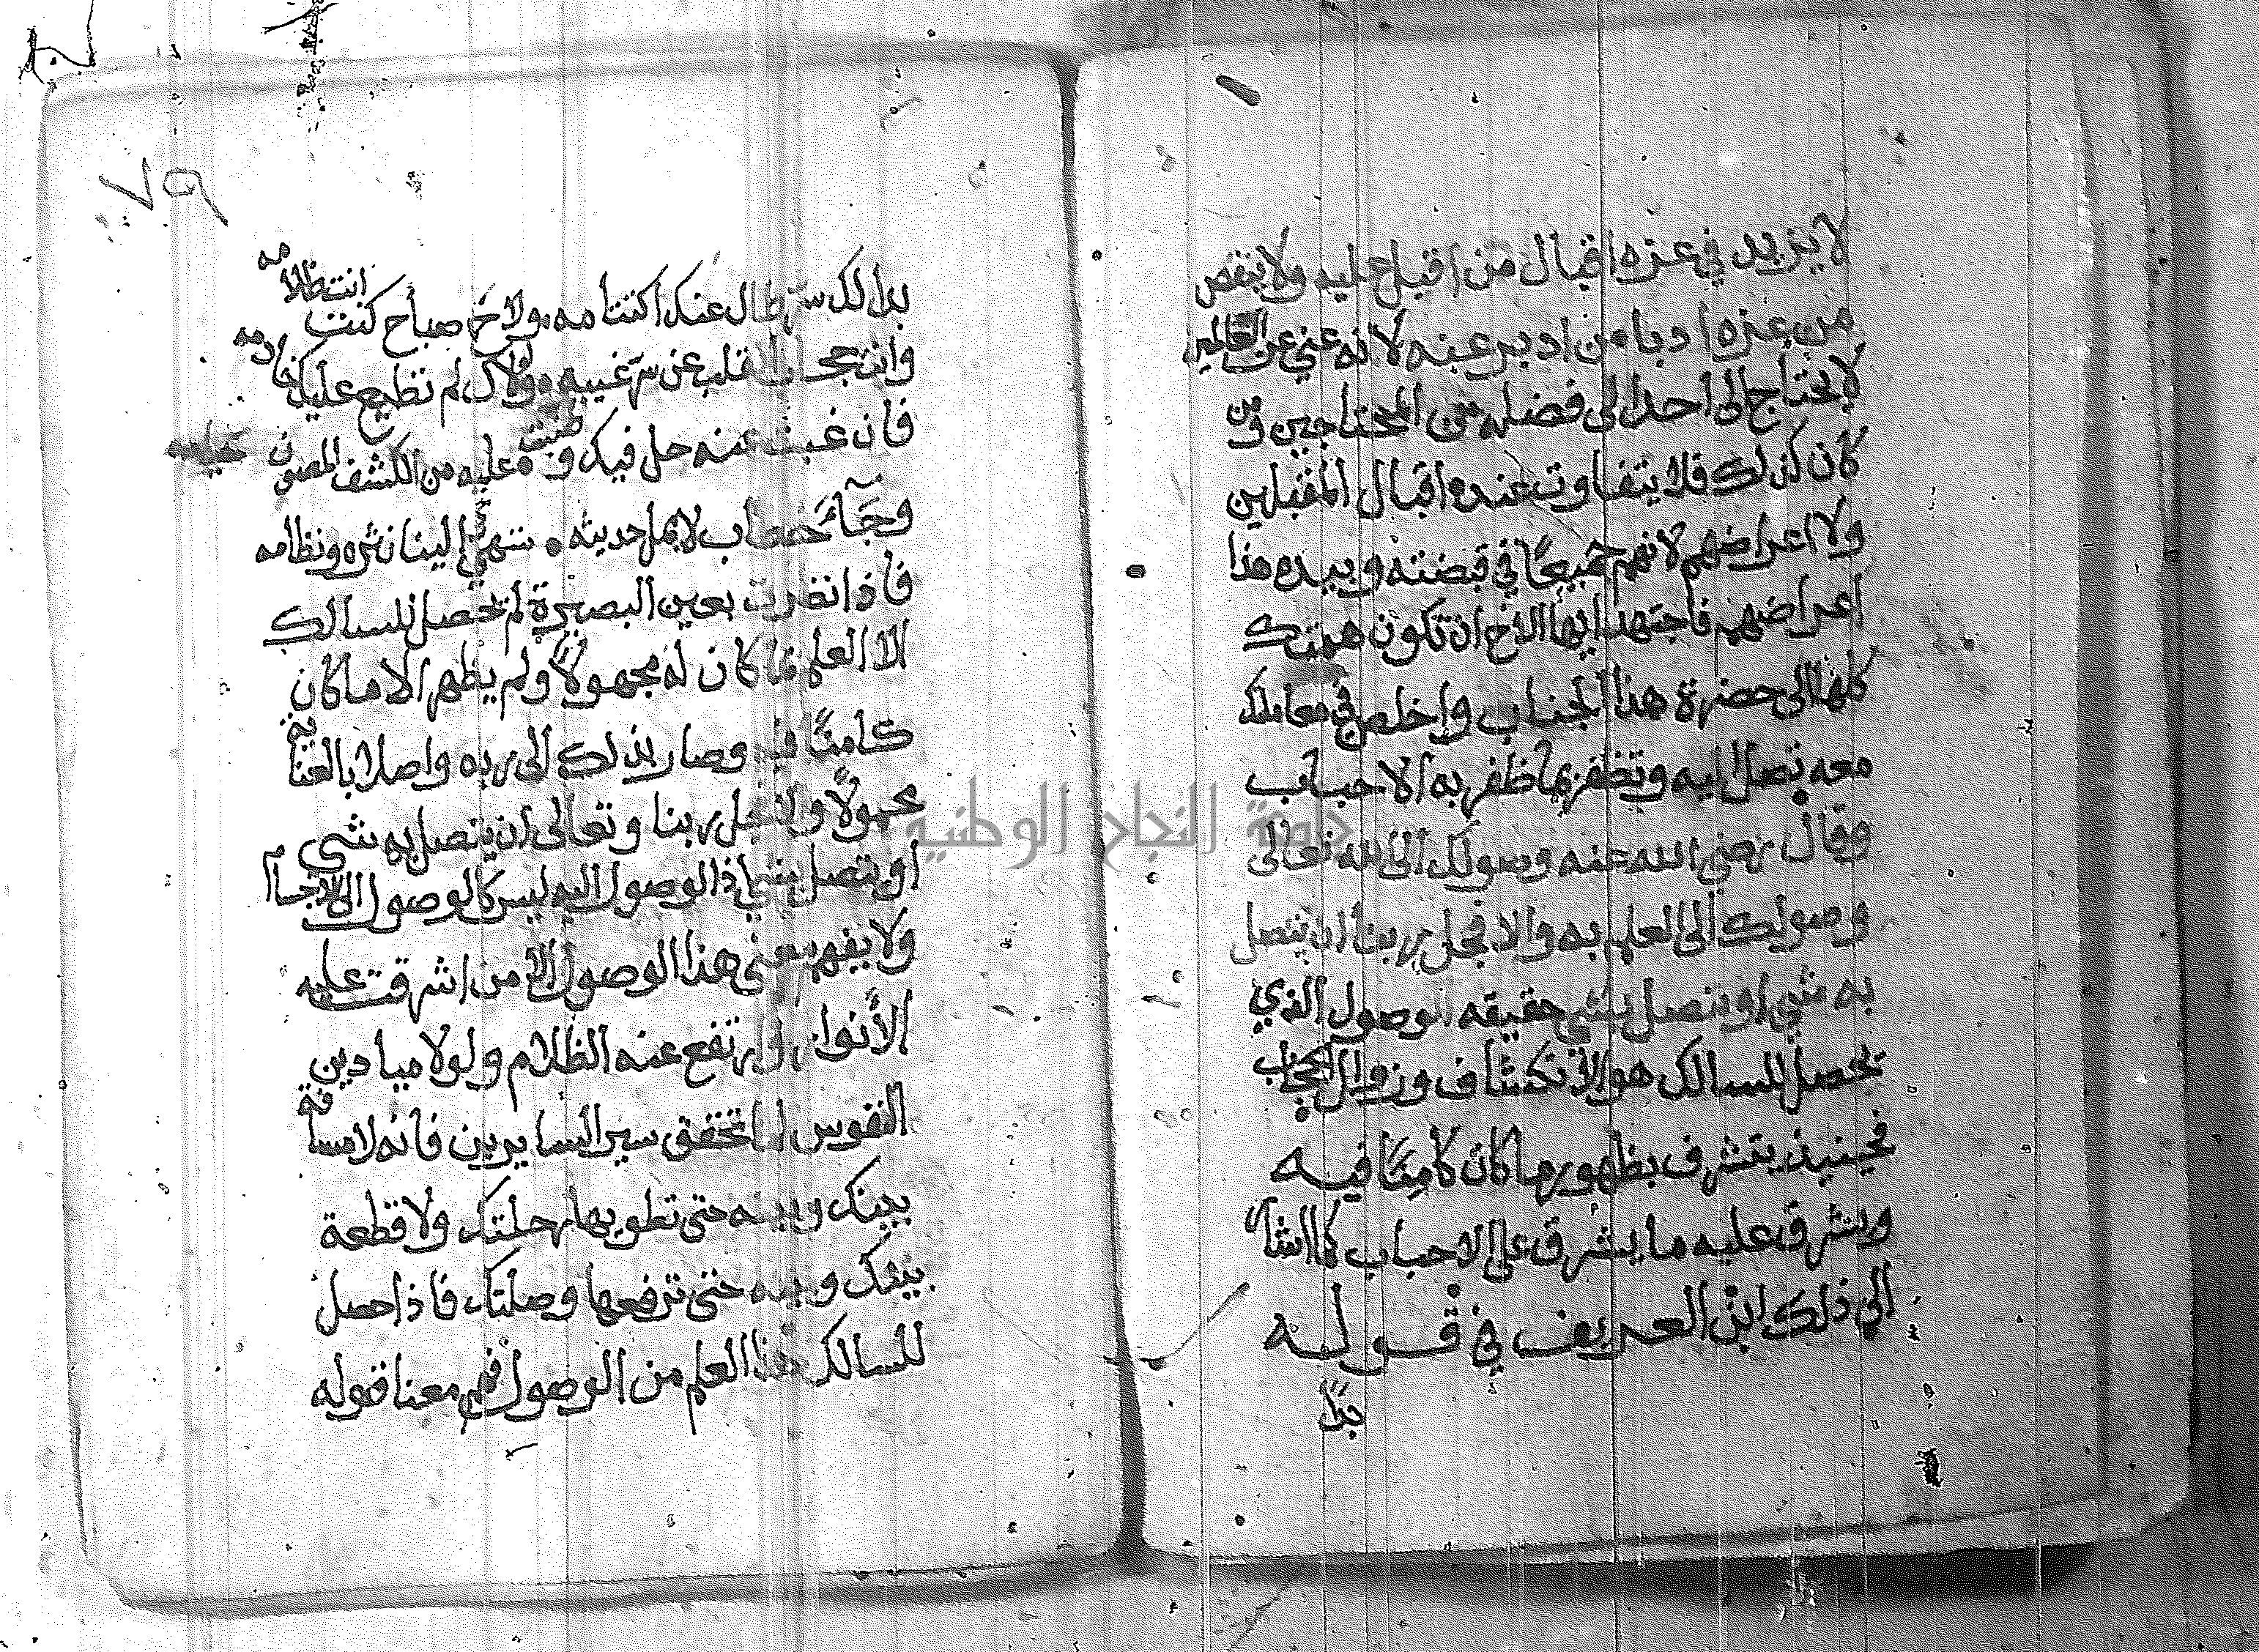 لا يزيد في عزه اقبال من اقبل عليه ولا ينقص
من عزه ادبار من ادبر عنه لانه غني عن العالمين
لا يحتاج الى احد الى فضله من المحتاجين ومن
كان كذلك فلا يتفاوت عنده اقبال المقبلين
ولا اعراضهم لانهم جميعًا في قبضته وبيده هذا
اعراضهم فاجتهد ايها الاخ ان تكون همتك
كلها الى حضرة هذا الجناب واخلص في معاملتك
معه تصل اليه وتظفر بما ظفر به الاحباب
وقال رضي الله عنه وصولك الى الله تعالى
وصولك الى العلم به والا فجل ربنا ان يتصل
به شي او يتصل بشي حقيقه الوصول الذي
يحصل للسالك هو الانكشاف وزوال الحجاب
فحينيذ يتشرف بظهور ما كان كامنًا فيه
ويشرق عليه ما يشرق على الاحباب كما اشار
الى ذلك ابن العريف في قوله
بدا
٧٩
بدا لك سر طال عنك اكتتامه ولاح صباح كنت انت ظلامه
وانت حجاب القلب عن سر غيبه ولولاك لم تطبع عليك ختامه
فان غبت عنه حل فيك وطنبت عليه من الكشف المصون خيامه
وجآء خطاب لا يمل حديثه شهي الينا نثره ونظامه
فاذا نظرت بعين البصيرة لم تحصل للسالك
الا العلم بما كان له مجهولًا ولم يظهر الا ما كان
كامنًا فيه وصار بذلك الى ربه واصلا بالعناية
محمولًا والا فجل ربنا وتعالى ان يتصل به شي
او يتصل بشي اذ الوصول اليه ليس كالوصول الى الاجسام
ولا يفهم معنى هذا الوصول الا من اشرقت عليه
الأنوار وارتفع عنه الظلام ولولا ميادين
النفوس لما تحقق سير السايرين فانه لا مسافة
بينك وبينه حتى تطويها رحلتك ولا قطعة
بينك وبينه حتى ترفعها وصلتك فاذا حصل
للسالك هذا العلم من الوصول فهم معنا قوله
جامعة النجاح الوطنية